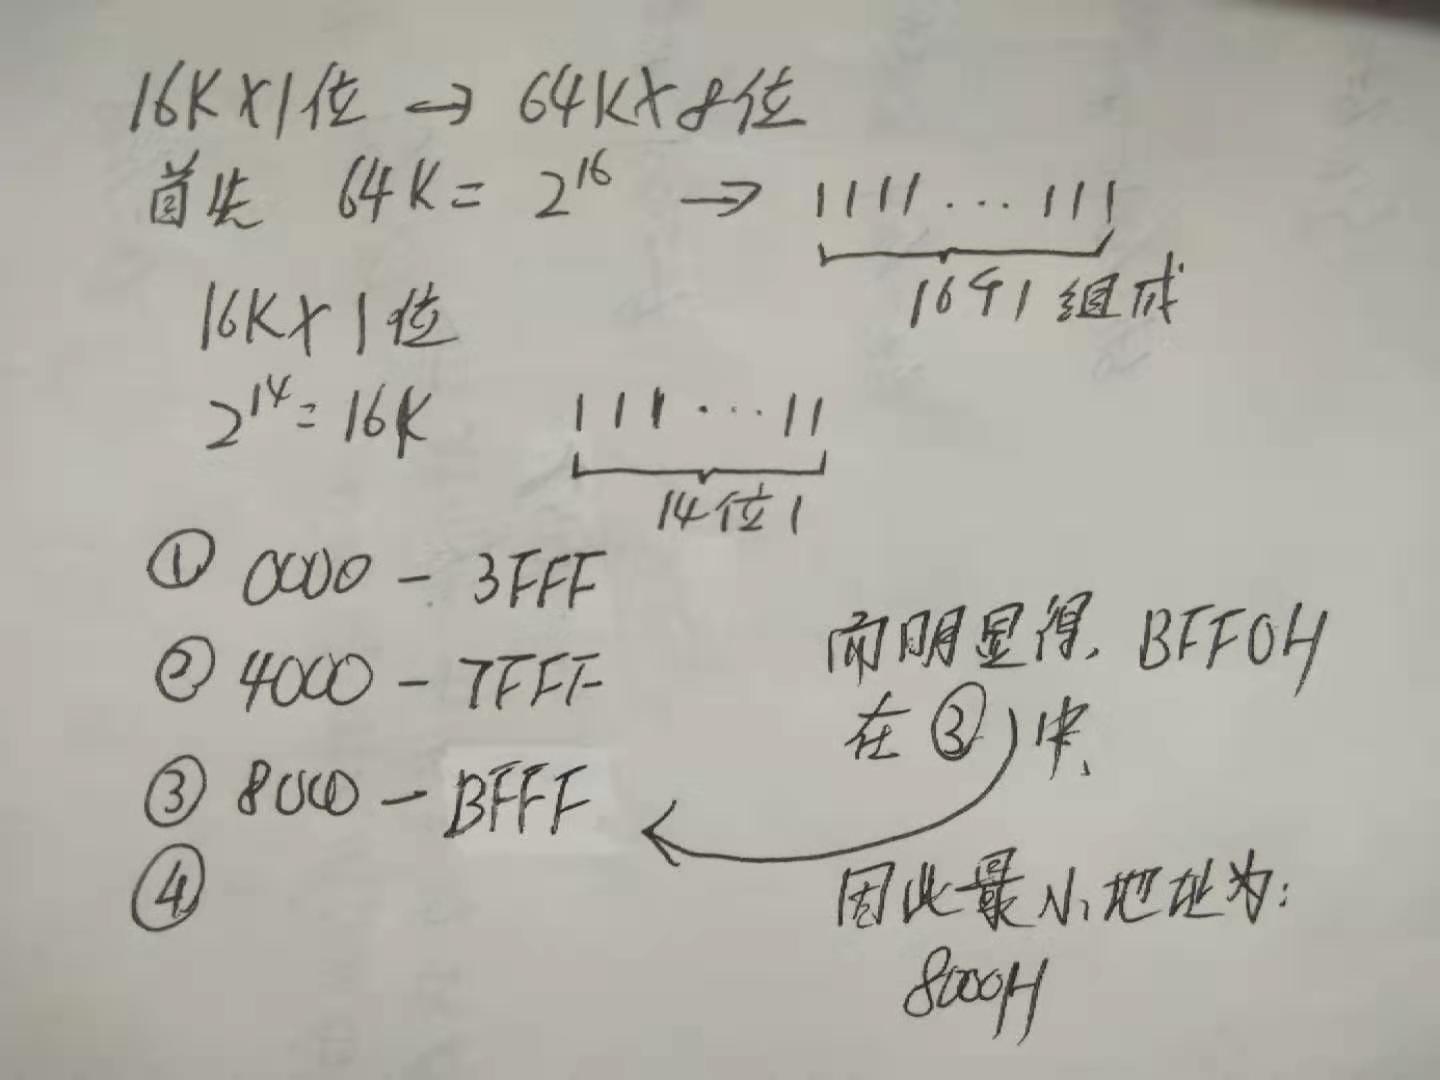 16K×1位 → 64K×8位
首先 64K = 2^16 → 1111...111
16个1组成
16K×1位
2^14 = 16K 111...11
14位1
① 0000 - 3FFF
② 4000 - 7FFF
③ 8000 - BFFF
④
而明显得, BFF0H
在③中,
因此最小地址为:
8000H